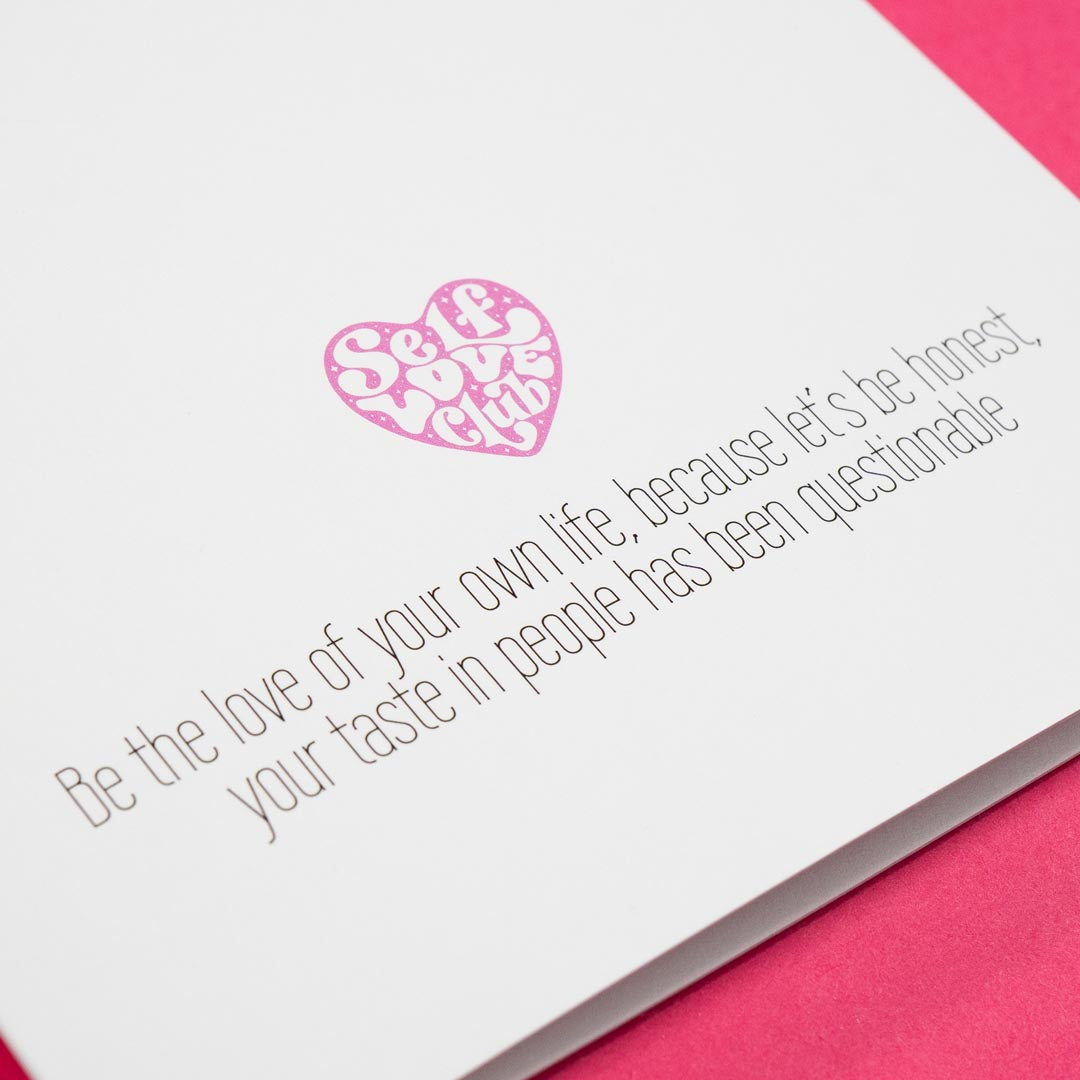 Self
Love
Club
Be the love of your own life, because let's be honest,
your taste in people has been questionable